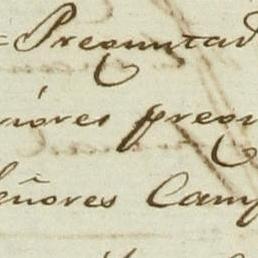 = Preguntad
riores pregu
eñores Camp